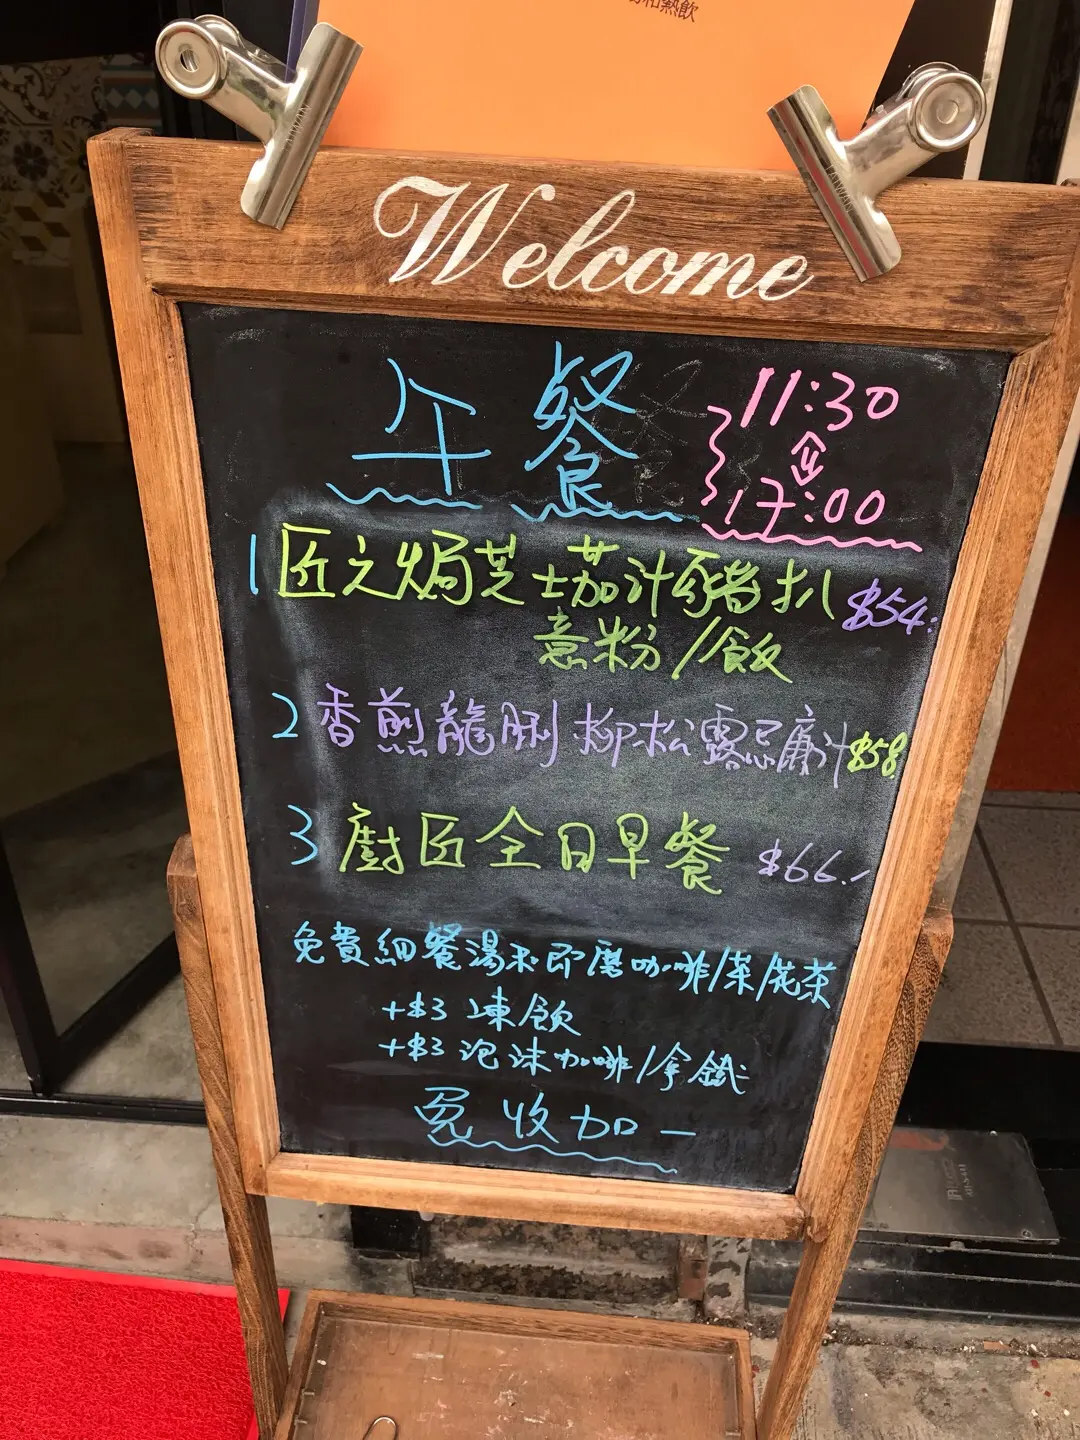 和熱飲
Welcome
午餐 11:30
至
17:00
1 匠之焗芝士茄汁豬扒 $54.
意粉/飯
2 香煎龍脷柳松露忌廉汁 $58
3 廚匠全日早餐 $66.-
免費細餐湯和即磨咖啡/茶/花茶
+$3 凍飲
+$3 泡沫咖啡/拿鐵
免收加一